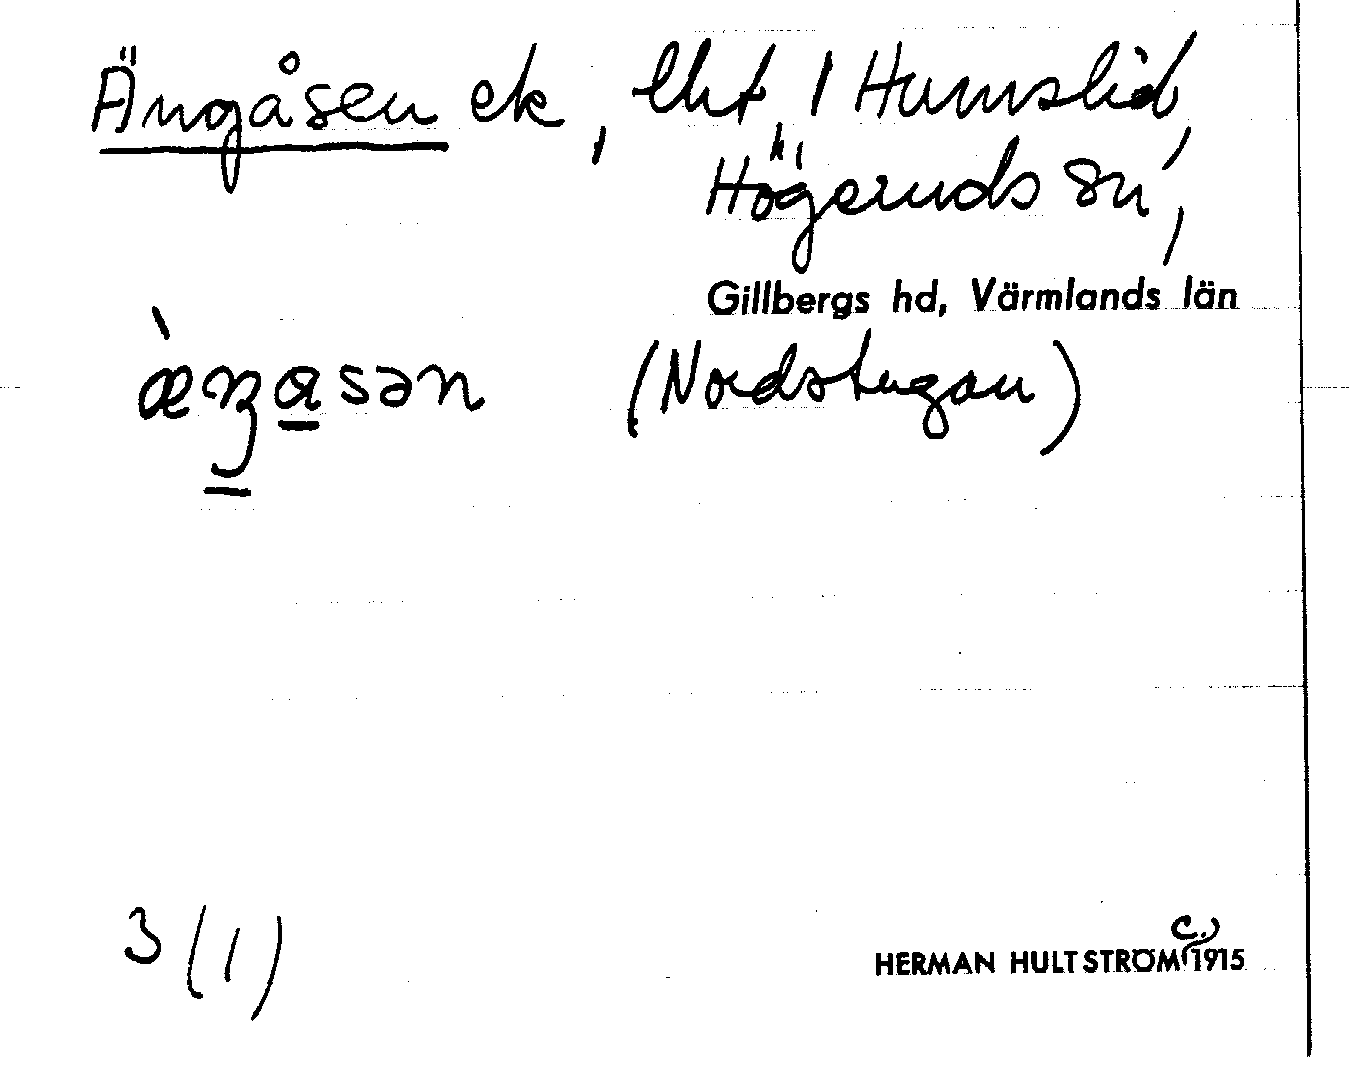 Ängåsen ek, lht, 1 Humslid,
Högeruds sn,
Gillbergs hd, Värmlands län
(Nordstugan)
3 (1)
HERMAN HULTSTRÖM c. 1915